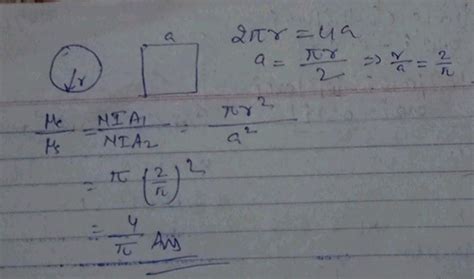 a
2πr = 4a
r
a = πr/2 ⇒ r/a = 2/π
Mc/Ms = NIA1/NIA2 = πr²/a²
= π (2/π)²
= 4/π Ans